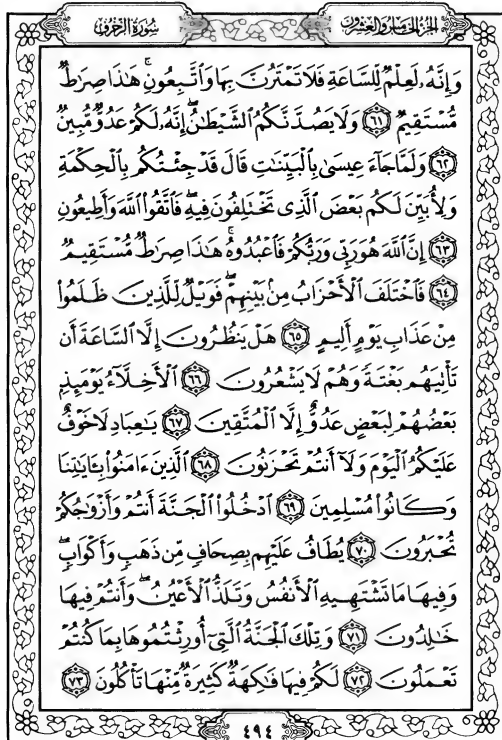 سُورَةُ الزُّخْرُفِ
الجُزْءُ الخَامِسُ وَالعِشْرُونَ
وَإِنَّهُۥ لَعِلْمٌ لِّلسَّاعَةِ فَلَا تَمْتَرُنَّ بِهَا وَٱتَّبِعُونِۚ هَٰذَا صِرَٰطٌ
مُّسْتَقِيمٌ ٦١ وَلَا يَصُدَّنَّكُمُ ٱلشَّيْطَٰنُۖ إِنَّهُۥ لَكُمْ عَدُوٌّ مُّبِينٌ
٦٢ وَلَمَّا جَآءَ عِيسَىٰ بِٱلْبَيِّنَٰتِ قَالَ قَدْ جِئْتُكُم بِٱلْحِكْمَةِ
وَلِأُبَيِّنَ لَكُم بَعْضَ ٱلَّذِى تَخْتَلِفُونَ فِيهِۖ فَٱتَّقُوا۟ ٱللَّهَ وَأَطِيعُونِ
٦٣ إِنَّ ٱللَّهَ هُوَ رَبِّى وَرَبُّكُمْ فَٱعْبُدُوهُۚ هَٰذَا صِرَٰطٌ مُّسْتَقِيمٌ
٦٤ فَٱخْتَلَفَ ٱلْأَحْزَابُ مِنۢ بَيْنِهِمْۖ فَوَيْلٌ لِّلَّذِينَ ظَلَمُوا۟
مِنْ عَذَابِ يَوْمٍ أَلِيمٍ ٦٥ هَلْ يَنظُرُونَ إِلَّا ٱلسَّاعَةَ أَن
تَأْتِيَهُم بَغْتَةً وَهُمْ لَا يَشْعُرُونَ ٦٦ ٱلْأَخِلَّآءُ يَوْمَئِذٍۭ
بَعْضُهُمْ لِبَعْضٍ عَدُوٌّ إِلَّا ٱلْمُتَّقِينَ ٦٧ يَٰعِبَادِ لَا خَوْفٌ
عَلَيْكُمُ ٱلْيَوْمَ وَلَآ أَنتُمْ تَحْزَنُونَ ٦٨ ٱلَّذِينَ ءَامَنُوا۟ بِـَٔايَٰتِنَا
وَكَانُوا۟ مُسْلِمِينَ ٦٩ ٱدْخُلُوا۟ ٱلْجَنَّةَ أَنتُمْ وَأَزْوَٰجُكُمْ
تُحْبَرُونَ ٧٠ يُطَافُ عَلَيْهِم بِصِحَافٍ مِّن ذَهَبٍ وَأَكْوَابٍۖ
وَفِيهَا مَا تَشْتَهِيهِ ٱلْأَنفُسُ وَتَلَذُّ ٱلْأَعْيُنُۖ وَأَنتُمْ فِيهَا
خَٰلِدُونَ ٧١ وَتِلْكَ ٱلْجَنَّةُ ٱلَّتِىٓ أُورِثْتُمُوهَا بِمَا كُنتُمْ
تَعْمَلُونَ ٧٢ لَكُمْ فِيهَا فَٰكِهَةٌ كَثِيرَةٌ مِّنْهَا تَأْكُلُونَ ٧٣
٤٩٤